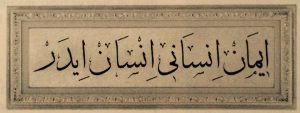 ايمان انسانى انسان ايدر